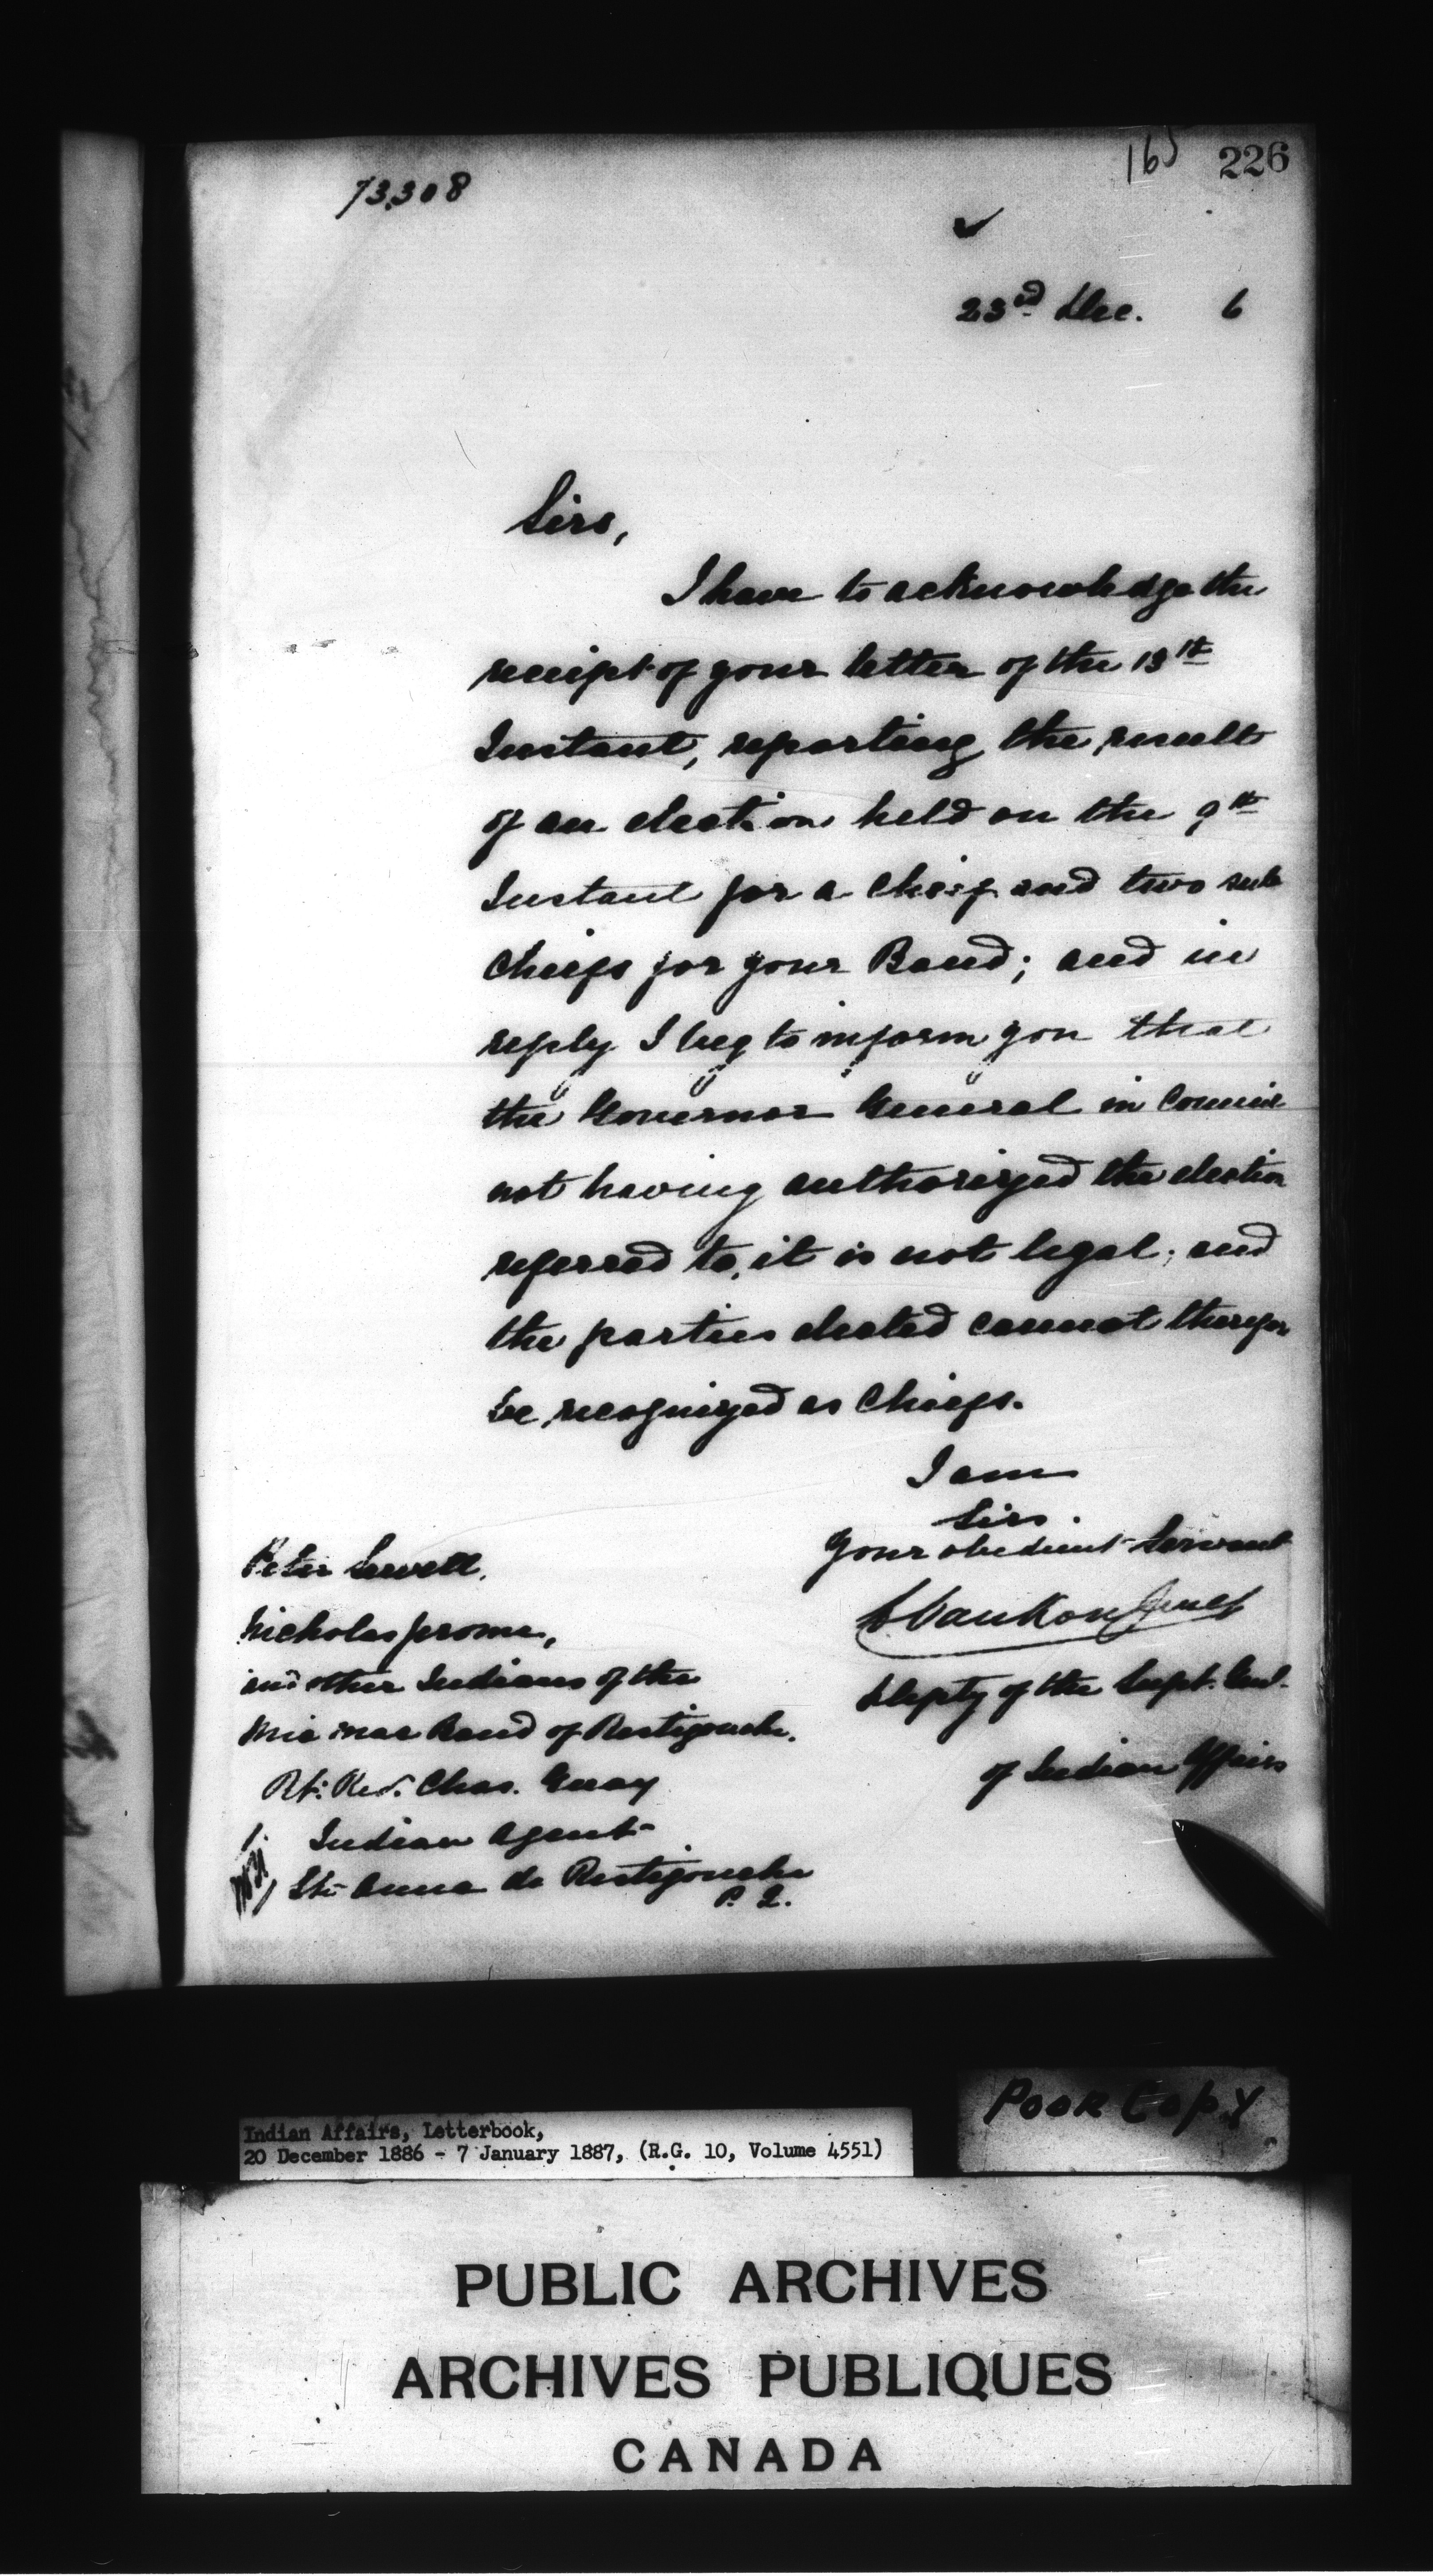 165 226
73308
23rd Dec. 6
Sirs,
I have to acknowledge the
receipt of your letter of the 13th
Instant, reporting the result
of an election held on the 9th
Instant for a Chief and two sub
Chiefs for your Band; and in
reply I beg to inform you that
the Governor General in Council
not having authorized the election
referred to, it is not legal; and
the parties elected cannot therefor
be recognized as Chiefs.
I am
Sirs.
Your obedient Servant
L VanKoughnet
Depty of the Supt. Genl.
of Indian Affairs
Peter Sewell,
Nicholas Jerome,
and other Indians of the
Micmac Band of Restigouche.
Rt. Rev. Chas. Guay
Indian Agent
Ste Anne de Restigouche
P. Q.
Poor Copy
Indian Affairs, Letterbook,
20 December 1886 - 7 January 1887, (R.G. 10, Volume 4551)
PUBLIC ARCHIVES
ARCHIVES PUBLIQUES
CANADA